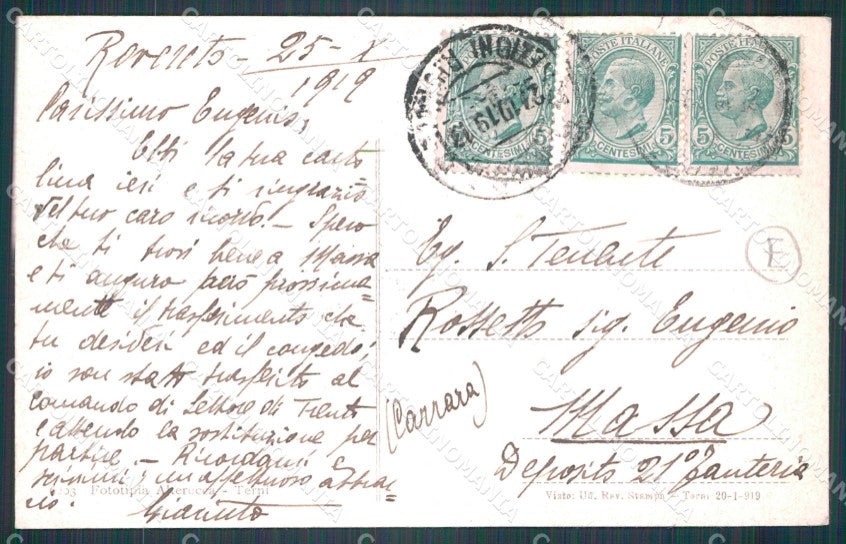 Rovereto - 25-X
1919
Carissimo Eugenio,
Ebbi la tua carto
lina ieri e ti ringrazio
del tuo caro ricordo. - Spero
che ti trovi bene a Massa
e ti auguro però prossima=
mente il trasferimento che
tu desideri ed il congedo;
io son stato trasferito al
comando di Settore di Trento
e attendo la sostituzione per
partire. - Ricordami e
scrivimi; un affettuoso abbrac=
cio.
POSTE ITALIANE
POSTE ITALIANE
POSTE ITALIANE
5 CENTESIMI 5
5 CENTESIMI 5
5 CENTESIMI 5
E
Eg. S. Tenente
Rossetto sig. Eugenio
(Carrara)
Massa
Deposito 21° Fanteria
Fototipia Alterocca - Terni
Visto: Uff. Rev. Stampa - Terni 20-1-919
CARTOLINOMANIA